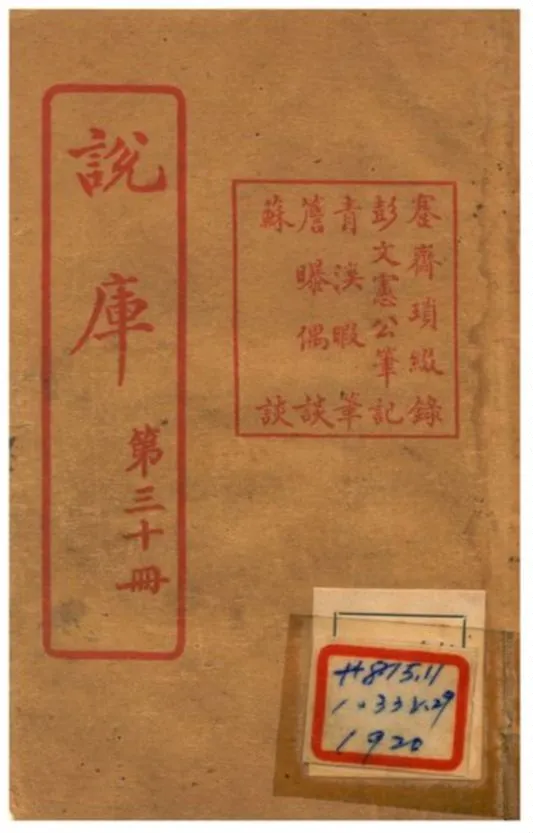 說庫
第三十冊
蹇齋瑣綴錄
彭文憲公筆記
青溪暇筆
簷曝偶談
蘇談
875.11
1920